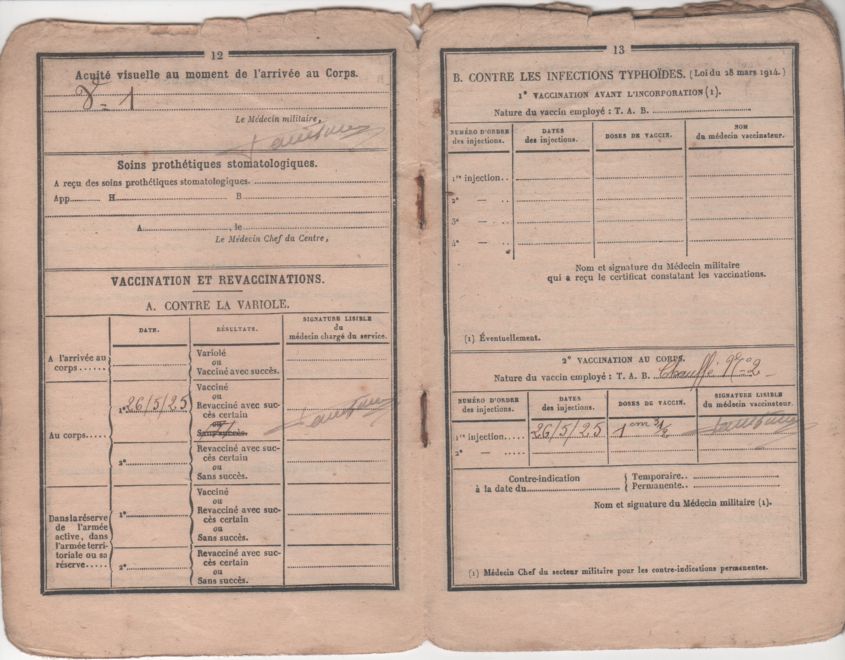 12
Acuité visuelle au moment de l'arrivée au Corps.
V = 1
Le Médecin militaire,
Soins prothétiques stomatologiques.
A reçu des soins prothétiques stomatologiques.
App. H B
A , le
Le Médecin Chef du Centre,
VACCINATION ET REVACCINATIONS.
A. CONTRE LA VARIOLE.
DATE. RÉSULTATS. SIGNATURE LISIBLE
du
médecin chargé du service.
A l'arrivée au
corps......
Variolé
ou
Vacciné avec succès.
Au corps....
1º 26/5/25
Vacciné
ou
Revacciné avec suc-
cès certain
ou
Sans succès.
2º
Revacciné avec suc-
cès certain
ou
Sans succès.
Dans la réserve
de l'armée
active, dans
l'armée terri-
toriale ou sa
réserve.....
1º
Vacciné
ou
Revacciné avec suc-
cès certain
ou
Sans succès.
2º
Revacciné avec suc-
cès certain
ou
Sans succès.
13
B. CONTRE LES INFECTIONS TYPHOÏDES. (Loi du 28 mars 1914.)
1º VACCINATION AVANT L'INCORPORATION (1).
Nature du vaccin employé : T. A. B.
NUMÉRO D'ORDRE
des injections.
DATES
des injections.
DOSES DE VACCIN.
NOM
du médecin vaccinateur.
1re injection..
2e — ..
3e — ..
4e — ..
Nom et signature du Médecin militaire
qui a reçu le certificat constatant les vaccinations.
(1) Éventuellement.
2º VACCINATION AU CORPS.
Nature du vaccin employé : T. A. B. Chauffé Nº 2
NUMÉRO D'ORDRE
des injections.
DATES
des injections.
DOSES DE VACCIN.
SIGNATURE LISIBLE
du médecin vaccinateur.
1re injection..... 26/5/25 1 cm3 1/2
2e — .....
Contre-indication
à la date du
Temporaire..
Permanente..
Nom et signature du Médecin militaire (1).
(1) Médecin Chef du secteur militaire pour les contre-indications permanentes.